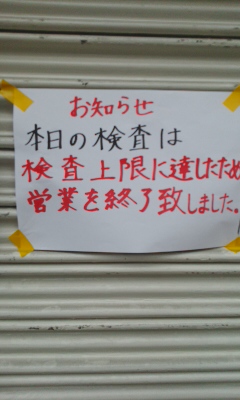 お知らせ
本日の検査は
検査上限に達したため
営業を終了致しました。